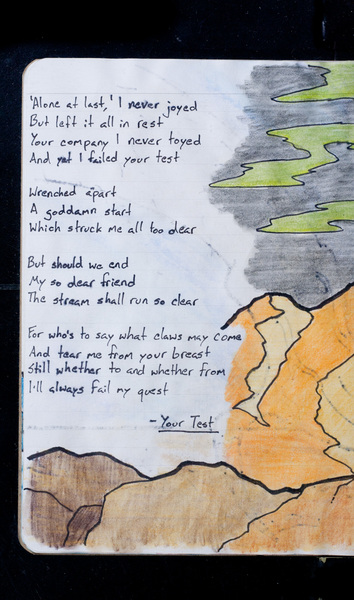 'Alone at last,' I never joyed
But left it all in rest
Your company I never toyed
And yet I failed your test
Wrenched apart
A goddamn start
Which struck me all too dear
But should we end
My so dear friend
The stream shall run so clear
For who's to say what claws may come
And tear me from your breast
Still whether to and whether from
I'll always fail my quest
- Your Test